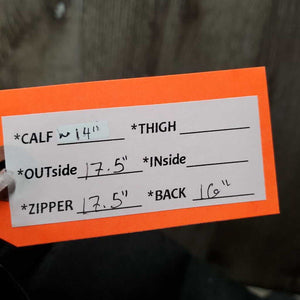 *CALF ~ 14" *THIGH
*OUTside 17.5" *INside
*ZIPPER 17.5" *BACK 16"